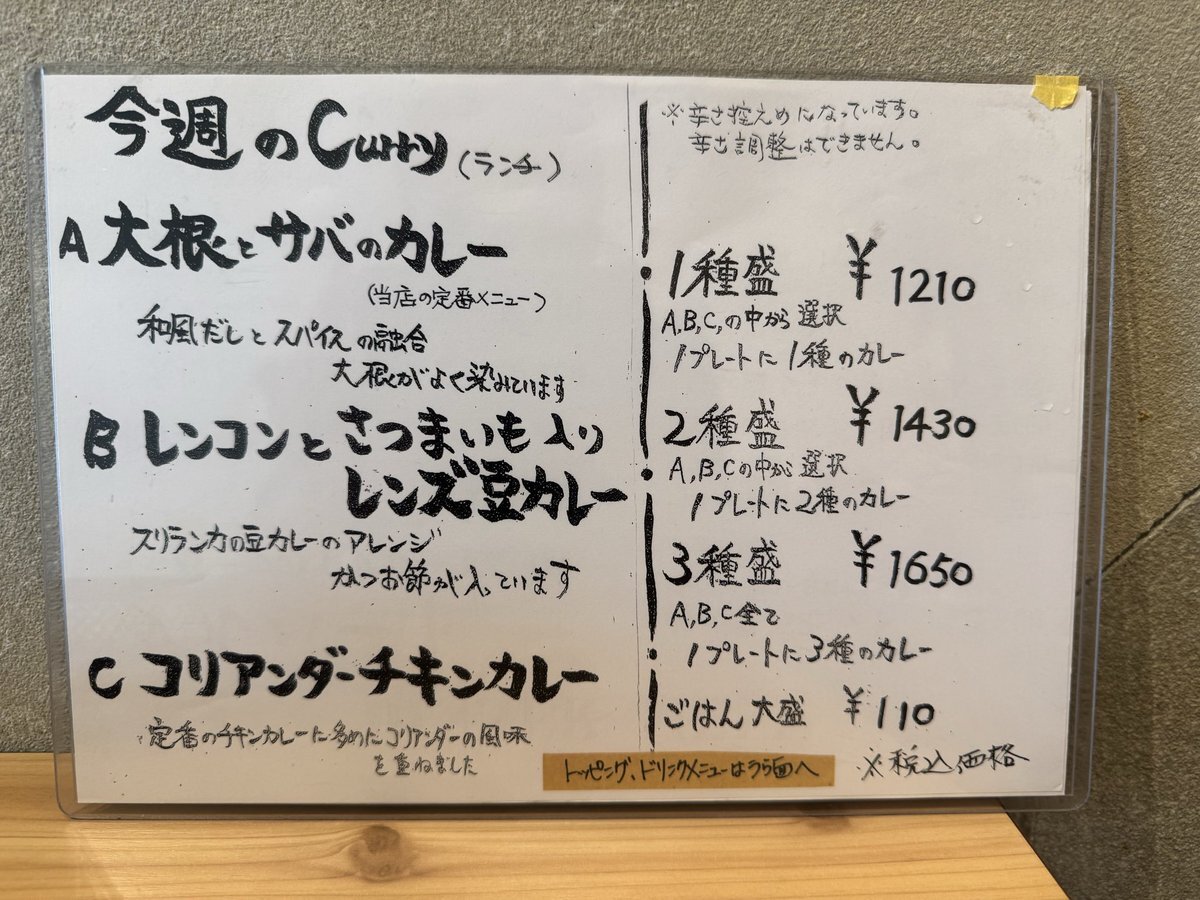 今週のCurry(ランチ)
A 大根とサバのカレー
(当店の定番メニュー)
和風だしとスパイスの融合
大根がよく染みています
B レンコンとさつまいも入り
レンズ豆カレー
スリランカの豆カレーのアレンジ
かつお節が入っています
C コリアンダーチキンカレー
定番のチキンカレーに多めにコリアンダーの風味
を重ねました
※辛さ控えめになっています。
辛さ調整はできません。
1種盛 ¥1210
A,B,C,の中から選択
1プレートに1種のカレー
2種盛 ¥1430
A,B,Cの中から選択
1プレートに2種のカレー
3種盛 ¥1650
A,B,C全て
1プレートに3種のカレー
ごはん大盛 ¥110
トッピング、ドリンクメニューはうら面へ
※税込価格